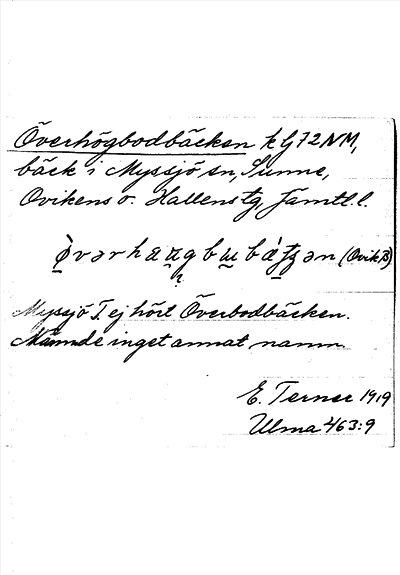 Överhögbodbäcken k G 72 NM,
bäck i Myssjö sn, Sunne,
Ovikens o. Hallens tg, Jämtl. l.
(Ovik B)
Myssjö T. ej hört Överbodbäcken.
Nämnde inget annat namn
E. Terner 1919
Ulma 463:9